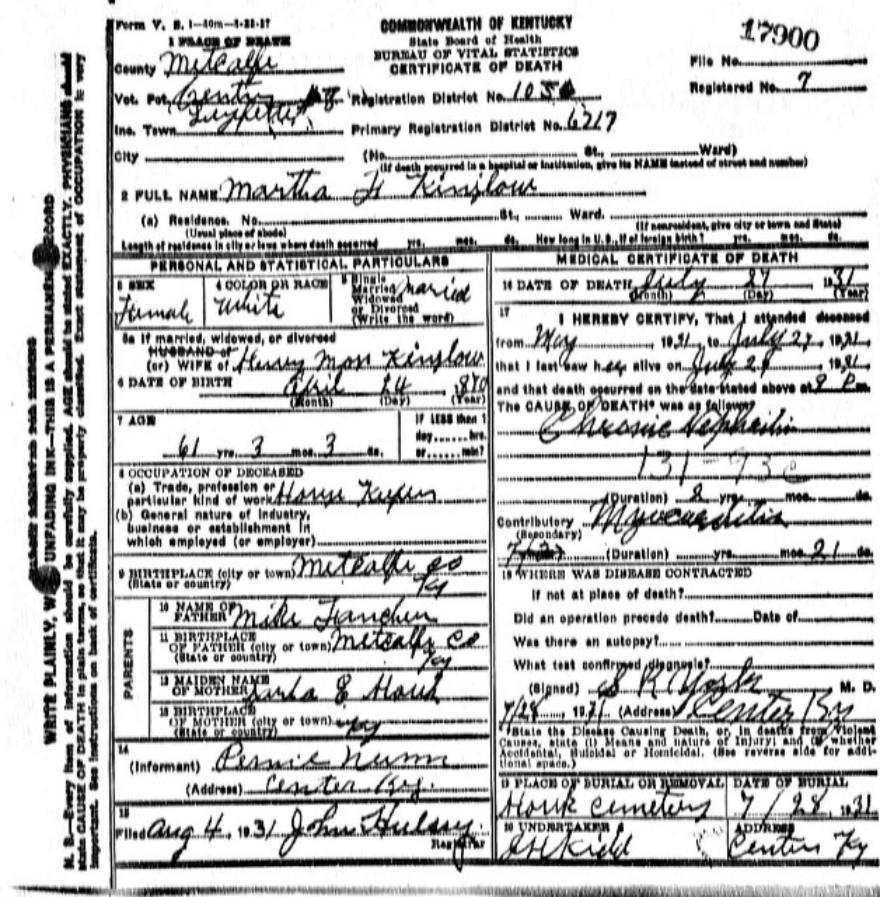 Form V. S. 1-50m-4-28-27
COMMONWEALTH OF KENTUCKY
State Board of Health
BUREAU OF VITAL STATISTICS
CERTIFICATE OF DEATH
17900
File No.
Registered No. 7
1 PLACE OF DEATH
County Metcalfe
Vot. Pct. Center
Registration District No. 1056
Inc. Town
Primary Registration District No. 6217
City
(No. St., Ward)
(If death occurred in a hospital or institution, give its NAME instead of street and number)
2 FULL NAME Martha F Kinslow
(a) Residence. No. St., Ward.
(Usual place of abode) (If nonresident, give city or town and State)
Length of residence in city or town where death occurred yrs. mos. ds. How long in U. S., if of foreign birth? yrs. mos. ds.
PERSONAL AND STATISTICAL PARTICULARS
3 SEX
Female
4 COLOR OR RACE
White
5 Single
Married
Widowed
or Divorced
(Write the word)
Married
5a If married, widowed, or divorced
HUSBAND of
(or) WIFE of Henry Mon Kinslow
6 DATE OF BIRTH April 24 870
(Month) (Day) (Year)
7 AGE
61 yrs. 3 mos. 3 ds.
If LESS than 1
day......hrs.
or......min?
8 OCCUPATION OF DECEASED
(a) Trade, profession or
particular kind of work House Keeper
(b) General nature of industry,
business or establishment in
which employed (or employer)
9 BIRTHPLACE (city or town) Metcalfe Co
(State or country) Ky
PARENTS
10 NAME OF
FATHER Mike
11 BIRTHPLACE
OF FATHER (city or town) Metcalfe Co
(State or country) Ky
12 MAIDEN NAME
OF MOTHER E Houk
13 BIRTHPLACE
OF MOTHER (city or town) Ky
(State or country)
14
(Informant) Nunn
(Address) Center Ky.
15
Filed Aug 4, 1931 John Hulsey
Registrar
MEDICAL CERTIFICATE OF DEATH
16 DATE OF DEATH July 27 1931
(Month) (Day) (Year)
17
I HEREBY CERTIFY, That I attended deceased
from May, 1931, to July 27, 1931,
that I last saw her alive on July 27, 1931,
and that death occurred on the date stated above at 8 P.m.
The CAUSE OF DEATH* was as follows:
Chronic Nephritis
131-93c
(Duration) 8 yrs. mos. ds.
Contributory Myocarditis
(Secondary)
(Duration) yrs. mos. 21 ds.
18 WHERE WAS DISEASE CONTRACTED
If not at place of death?
Did an operation precede death? Date of
Was there an autopsy?
What test confirmed diagnosis?
(Signed) S K York M. D.
7/28, 1931 (Address) Center Ky
*State the Disease Causing Death, or, in deaths from Violent
Causes, state (1) Means and nature of Injury; and (2) whether
Accidental, Suicidal or Homicidal. (See reverse side for addi-
tional space.)
19 PLACE OF BURIAL OR REMOVAL
Houk Cemetery
DATE OF BURIAL
7/28, 1931
20 UNDERTAKER
Kidd
ADDRESS
Center Ky
WRITE PLAINLY, UNFADING INK—THIS IS A PERMANENT RECORD
N. B.—Every item of information should be carefully supplied. AGE should be stated EXACTLY. PHYSICIANS should
state CAUSE OF DEATH in plain terms, so that it may be properly classified. Exact statement of OCCUPATION is very
important. See instructions on back of certificate.